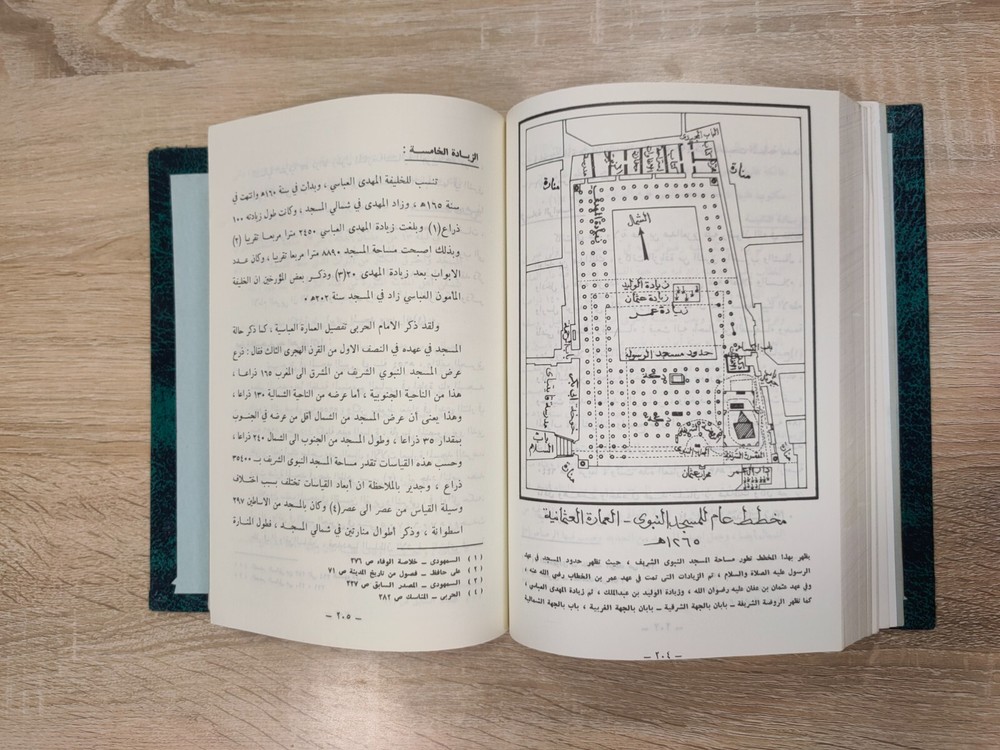 الباب المجيدي
منارة
منارة
زيادة المهدي
الشمال
زيادة الوليد
زيادة عثمان
زيادة عمر
حدود مسجد الرسول
باب الرحمة
خوخة أبي بكر
مدرسة قايتباي
دكة
باب السلام
منارة
منارة
محراب عثمان
مخطط عام للمسجد النبوي - العمارة العثمانية
١٢٦٥هـ
يظهر بهذا المخطط تطور مساحة المسجد النبوى الشريف ، حيث تظهر حدود المسجد في عهد
الرسول عليه الصلاة والسلام ، ثم الزيادات التى تمت في عهد عمر بن الخطاب رضى الله عنه ،
وفي عهد عثمان بن عفان عليه رضوان الله ، وزيادة الوليد بن عبدالملك ، ثم زيادة المهدى العباسى ،
كما تظهر الروضة الشريفة – بابان بالجهة الشرقية – بابان بالجهة الغربية ، باب بالجهة الشمالية
– ٢٠٤ –
الزيادة الخامسة :
تنسب للخليفة المهدى العباسي ، وبدأت في سنة ١٦٠هـ وانتهت في
سنة ١٦٥هـ ، وزاد المهدى في شمالي المسجد ، وكانت طول زيادته ١٠٠
ذراع(١) وبلغت زيادة المهدى العباسى ٢٤٥٠ مترا مربعا تقريبا (٢)
وبذلك اصبحت مساحة المسجد ٨٨٩٠ مترا مربعا تقريبا ، وكان عدد
الابواب بعد زيادة المهدى ٢٠(٣) وذكر بعض المؤرخين ان الخليفة
المامون العباسى زاد في المسجد سنة ٢٠٢هـ ٠
ولقد ذكر الامام الحربى تفصيل العمارة العباسية ، كما ذكر حالة
المسجد في عهده في النصف الاول من القرن الهجرى الثالث فقال : ذرع
عرض المسجد النبوي الشريف من المشرق الى المغرب ١٦٥ ذراعا ،
هذا من الناحية الجنوبية ، أما عرضه من الناحية الشمالية ١٣٠ ذراعا ،
وهذا يعنى أن عرض المسجد من الشمال أقل من عرضه في الجنوب
بمقدار ٣٥ ذراعا ، وطول المسجد من الجنوب الى الشمال ٢٤٠ ذراعا ،
وحسب هذه القياسات تقدر مساحة المسجد النبوى الشريف بـ ٣٥٤٠٠
ذراع ، وجدير بالملاحظة ان أبعاد القياسات تختلف بسبب اختلاف
وسيلة القياس من عصر الى عصر(٤) وكان بالمسجد من الاساطين ٢٩٧
أسطوانة ، وذكر أطوال منارتين في شمالي المسجد ، فطول المنارة
(١) السمهودى – خلاصة الوفاء ص ٢٧٦
(٢) على حافظ – فصول من تاريخ المدينة ص ٧١
(٣) السمهودى – المصدر السابق ص ٢٢٧
(٤) الحربى – المناسك ص ٣٨٢
– ٢٠٥ –